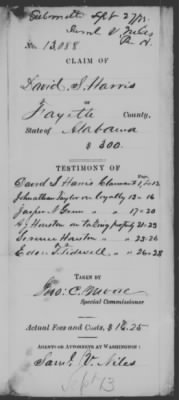 Submitted Sept 27/75
Saml V Niles
No. 13,088
CLAIM OF
David S. Harris
OF
Fayette County,
State of Alabama
$ 300.
TESTIMONY OF
David S. Harris Claimant
Johnathan Taylor on loyalty 13-16
Jasper N. " 17-20
Houston on taking property 21-23
Houston " 23-26
Tidwell " 26-28
TAKEN BY
Jno. C. Moore
Special Commissioner
Actual Fees and Costs, $
AGENTS OR ATTORNEYS AT WASHINGTON:
Saml. V. Niles
Sept 13